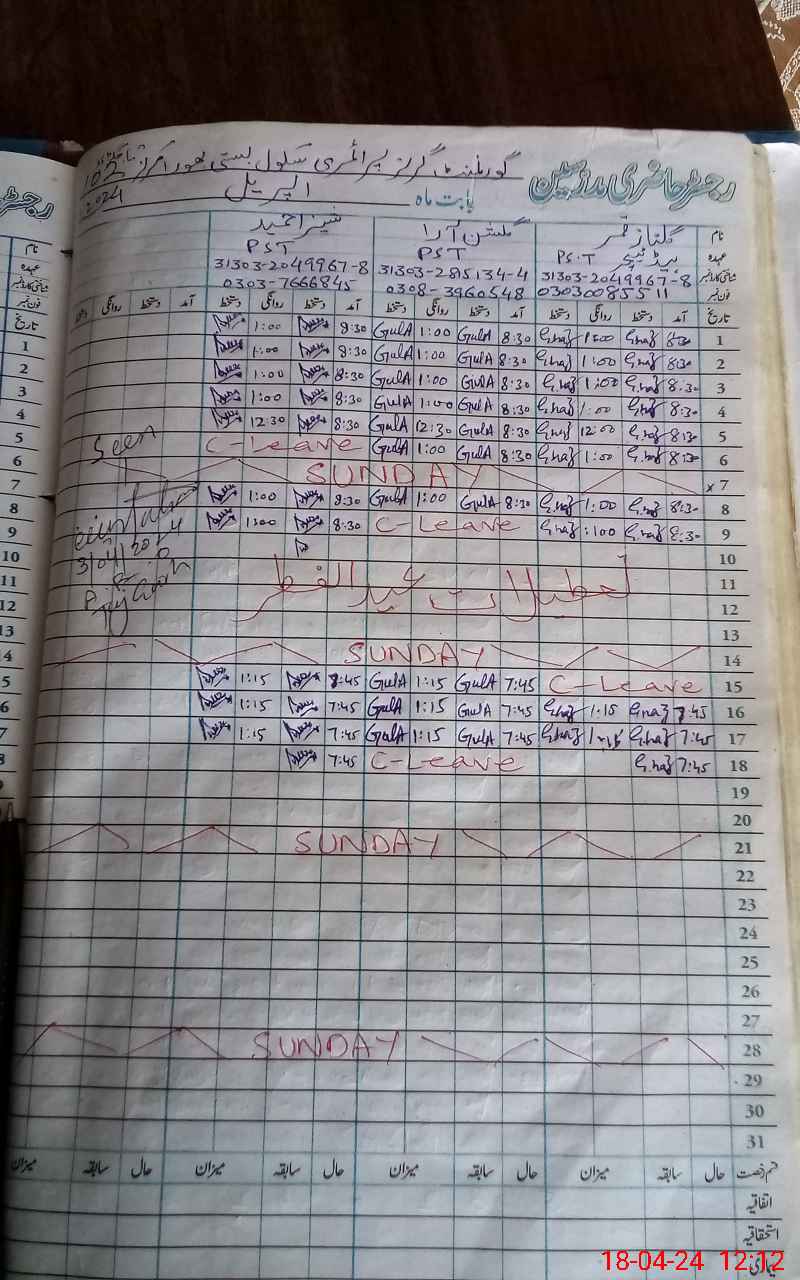 رجسٹر حاضری مدرسین گورنمنٹ گرلز پرائمری سکول بستی
بابت ماہ اپریل 2024
نام گلناز قمر گلشن آرا
عہدہ ہیڈ ٹیچر PST PST PST
شناختی کارڈ نمبر 31303-2049967-8 31303-2815134-4 31303-2049967-8
فون نمبر 03030085511 0308-3960548 0303-7666845
تاریخ آمد دستخط روانگی دستخط آمد دستخط روانگی دستخط آمد دستخط روانگی دستخط آمد دستخط روانگی
1 8:30 G.naz 1:00 G.naz 8:30 GulA 1:00 GulA 8:30 1:00
2 8:30 G.naz 1:00 G.naz 8:30 GulA 1:00 GulA 8:30 1:00
3 8:30 G.naz 1:00 G.naz 8:30 GulA 1:00 GulA 8:30 1:00
4 8:30 G.naz 1:00 G.naz 8:30 GulA 1:00 GulA 8:30 1:00
5 8:30 G.naz 12:00 G.naz 8:30 GulA 12:30 GulA 8:30 12:30
6 8:30 G.naz 1:00 G.naz 8:30 GulA 1:00 GulA C-Leave Seen
7 SUNDAY
8 8:30 G.naz 1:00 G.naz 8:30 GulA 1:00 GulA 8:30 1:00
9 8:30 G.naz 1:00 G.naz C-Leave 8:30 1:00
10
11 تعطیلات عید الفطر
12
13
14 SUNDAY
15 C-Leave 7:45 GulA 1:15 GulA 7:45 1:15
16 7:45 G.naz 1:15 G.naz 7:45 GulA 1:15 GulA 7:45 1:15
17 7:45 G.naz 1:15 G.naz 7:45 GulA 1:15 GulA 7:45 1:15
18 7:45 G.naz C-Leave 7:45
19
20
21 SUNDAY
22
23
24
25
26
27
28 SUNDAY
29
30
31
قسم رخصت حال سابقہ میزان حال سابقہ میزان حال سابقہ میزان حال سابقہ میزان
اتفاقیہ
استحقاقیہ
بیماری
18-04-24 12:12